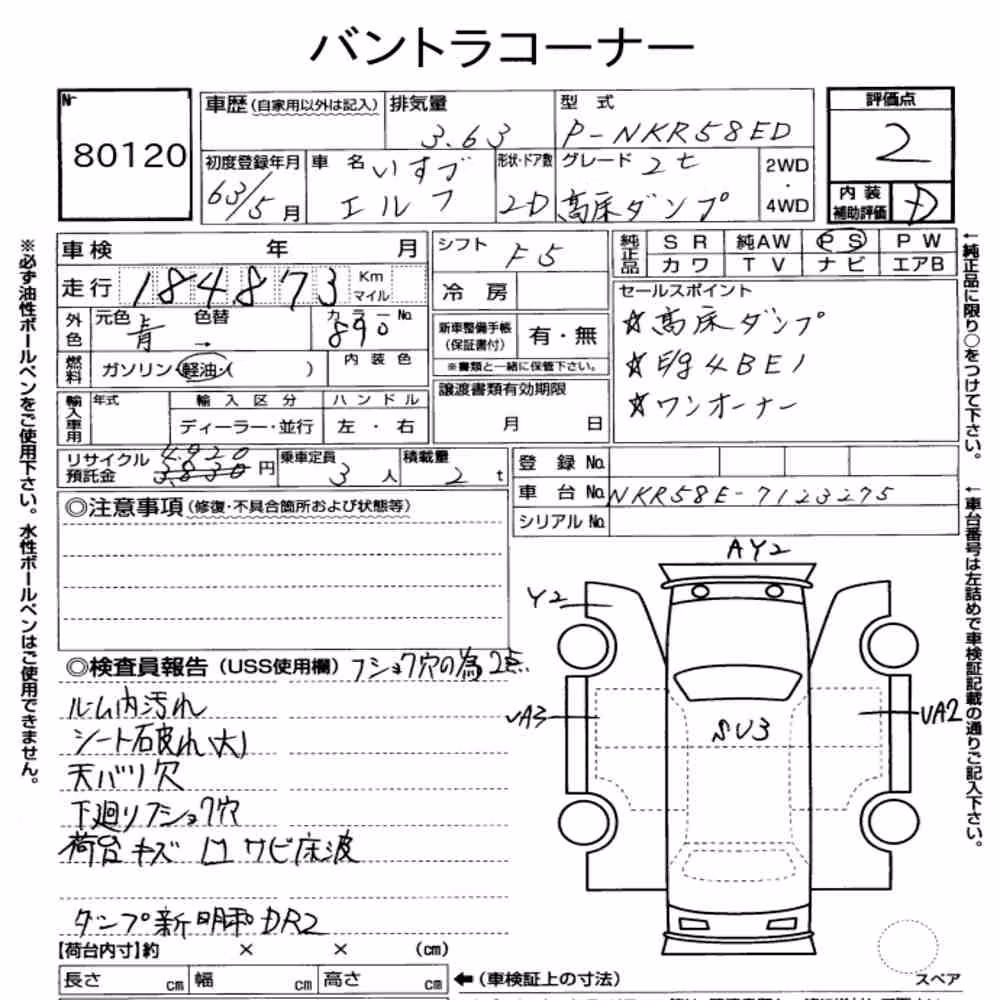 バントラコーナー
Nr
80120
車歴(自家用以外は記入)
排気量
3.63
型式
P-NKR58ED
評価点
2
初度登録年月
63/5月
車名
いすゞ
エルフ
形状・ドア数
2D
グレード 2t
高床ダンプ
2WD
・
4WD
内装
補助評価
D
車検 年 月
シフト
F5
純正品
SR 純AW PS PW
カワ TV ナビ エアB
走行 184,873 Km
マイル
冷房
セールスポイント
☆高床ダンプ
☆4BE1
☆ワンオーナー
外色
元色
青
色替
→
カラーNo.
890
新車整備手帳
(保証書付)
有・無
※書類と一緒に保管下さい。
燃料
ガソリン・軽油・( )
内装色
譲渡書類有効期限
月 日
輸入車用
年式
輸入区分
ハンドル
ディーラー・並行
左・右
リサイクル
預託金
4.920
3.830円
乗車定員
3人
積載量
2t
登録No.
車台No. NKR58E-7123275
シリアルNo.
◎注意事項(修復・不具合箇所および状態等)
◎検査員報告(USS使用欄)フショク穴の為2点
ルーム内汚れ
シート破れ(大)
天バリ穴
下廻りフショク穴
荷台キズ凹サビ床波
ダンプ新明和DR2
AY2
Y2
UA3
SU3
UA2
【荷台内寸】約 × × (cm)
長さ cm 幅 cm 高さ cm
←(車検証上の寸法)
スペア
※必ず油性ボールペンをご使用下さい。水性ボールペンはご使用できません。
←純正品に限り○をつけて下さい。
←車台番号は左詰めで車検証記載の通りご記入下さい。